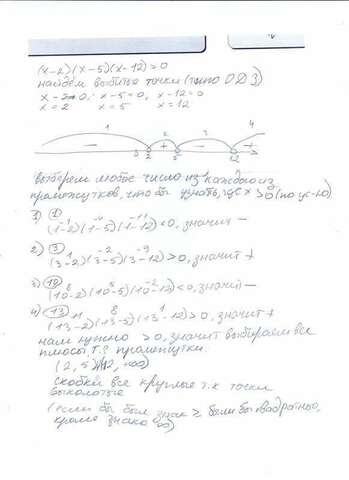 (x-2)(x-5)(x-12)>0
найдём выбитые точки (типо ОДЗ)
x-2=0; x-5=0, x-12=0
x=2 x=5 x=12
1 2 3 4
− + − +
0 2 5 12
выберем любое число из каждого из
промежутков, что бы узнать, где x >0 (по ус-ю)
1) ① -1 -4 -11
(1-2)(1-5)(1-12)<0, значит −
2) ③ -2 -9
(3-2)(3-5)(3-12)>0, значит +
3) ⑩ 8 5 -2
(10-2)(10-5)(10-12)<0, значит −
4) ⑬ 11 8 1
(13-2)(13-5)(13-12)>0, значит +
нам нужно >0, значит выбираем все
плюсы, т.е промежутки
(2, 5) (12, ∞)
скобки все круглые т.к точки
выколотые
(если бы был знак ≥ были бы квадратные,
кроме знака ∞)